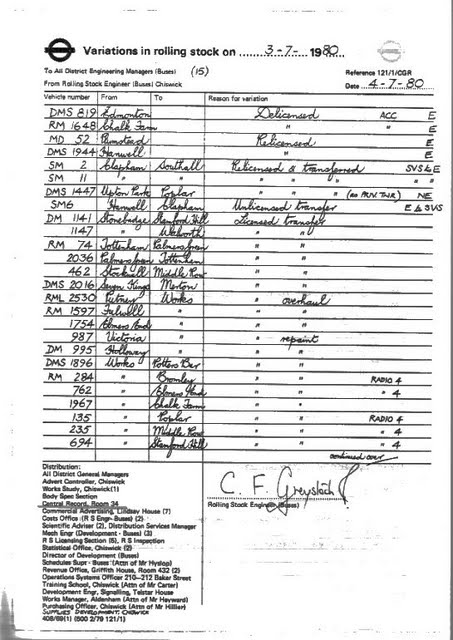 Variations in rolling stock on ........3-7-....1980
To All District Engineering Managers (Buses) (15) Reference 121/1/CGR
From Rolling Stock Engineer (Buses) Chiswick Date 4-7-80
Vehicle number From To Reason for variation
DMS 819 Edmonton Delicensed ACC E
RM 1648 Chalk Farm " " E
MD 52 Plumstead Relicensed E
DMS 1944 Hanwell " E
SM 2 Clapham Southall Relicensed & transferred SVS & E
SM 11 " " " " " "
DMS 1447 Upton Park Poplar " " (as PRIV. TNR) NE
SM6 Hanwell Clapham Unlicensed transfer E & SVS
DM 1141 Stonebridge Stamford Hill Licensed transfer
1147 " Walworth " "
RM 74 Tottenham Palmers Green " "
2036 Palmers Green Tottenham " "
462 Stockwell Middle Row " "
DMS 2016 Seven Kings Merton " "
RML 2530 Putney Works " overhaul
RM 1597 Fulwell " " "
1754 Elmers End " " "
987 Victoria " " repaint
DM 995 Holloway " " "
DMS 1896 Works Potters Bar " "
RM 284 " Bromley " " RADIO 4
762 " Elmers End " " " 4
1967 " Chalk Farm " "
135 " Poplar " " RADIO 4
235 " Middle Row " " " 4
694 " Stamford Hill " " " 4
continued over
Distribution:
All District General Managers
Advert Controller, Chiswick
Works Study, Chiswick(1)
Body Spec Section
Central Record, Room 34
Commercial Advertising, Lindsay House (7)
Costs Office (R S Engr- Buses) (2)
Scientific Adviser (2), Distribution Services Manager
Mech Engr (Development - Buses) (3)
R S Licensing Section (5), R S Inspection
Statistical Office, Chiswick (2)
Director of Development (Buses)
Schedules Supt - Buses (Attn of Mr Hyslop)
Revenue Office, Griffith House, Room 432 (2)
Operations Systems Officer 210-212 Baker Street
Training School, Chiswick (Attn of Mr Carter)
Development Engr, Signalling, Telstar House
Works Manager, Aldenham (Attn of Mr Hayward)
Purchasing Officer, Chiswick (Attn of Mr Hillier)
SUPPLIES DEVELOPMENT: CHISWICK
408/69(1) (500 2/79 121/1)
C. F. Greystoch
Rolling Stock Engineer (Buses)